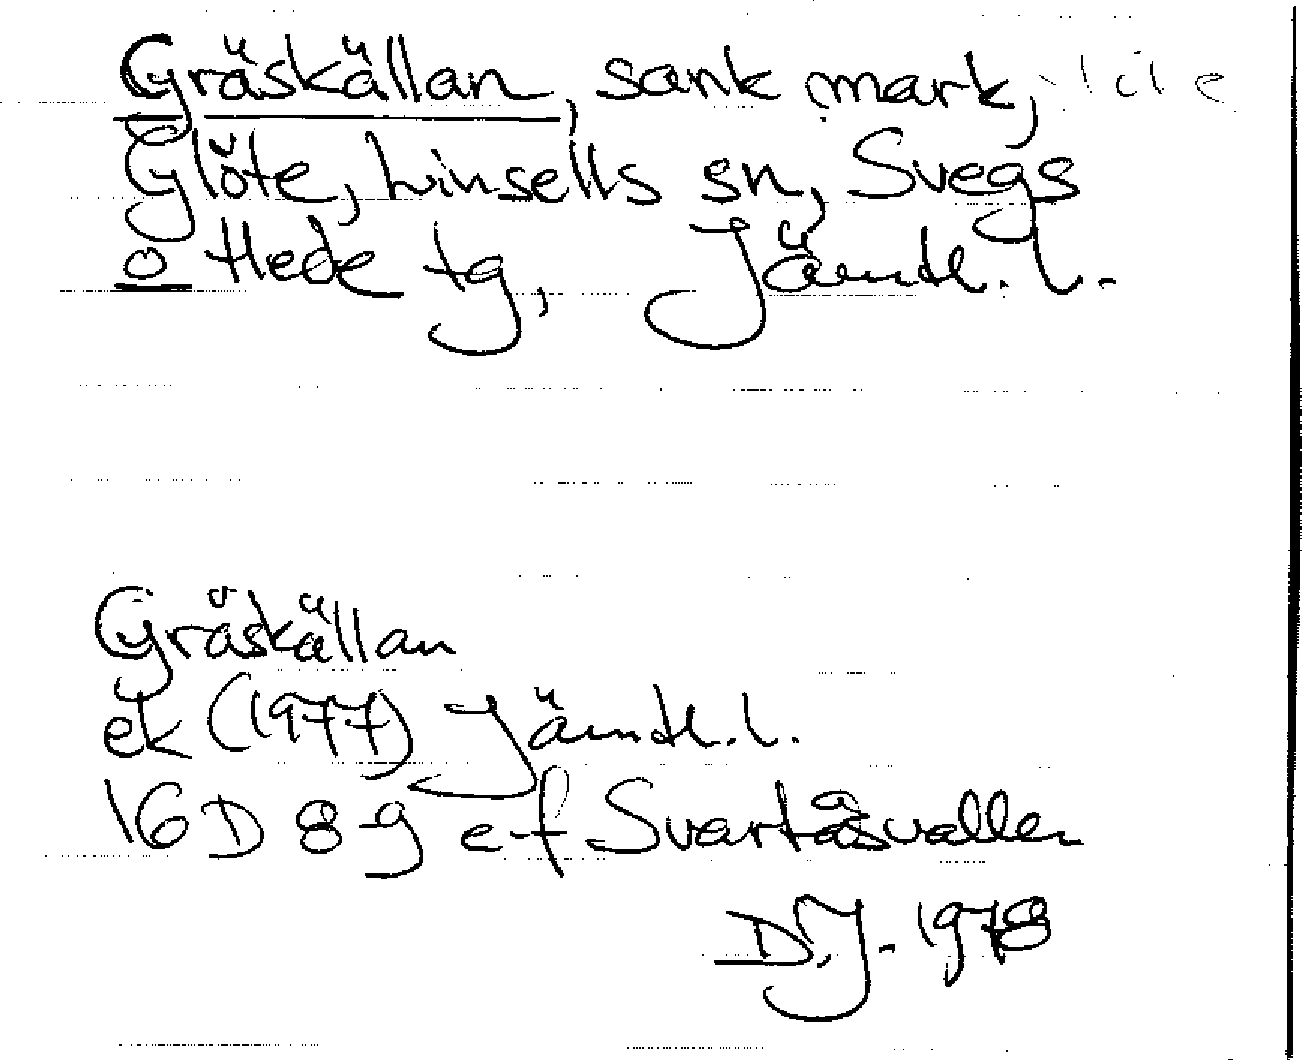 Gräskällan, sank mark,
Glöte, Linsells sn, Svegs
o Hede tg, Jämtl. l.
Gräskällan
ek (1977) Jämtl. l.
16 D 8 g ef Svartåsvallen
D.J. 1978